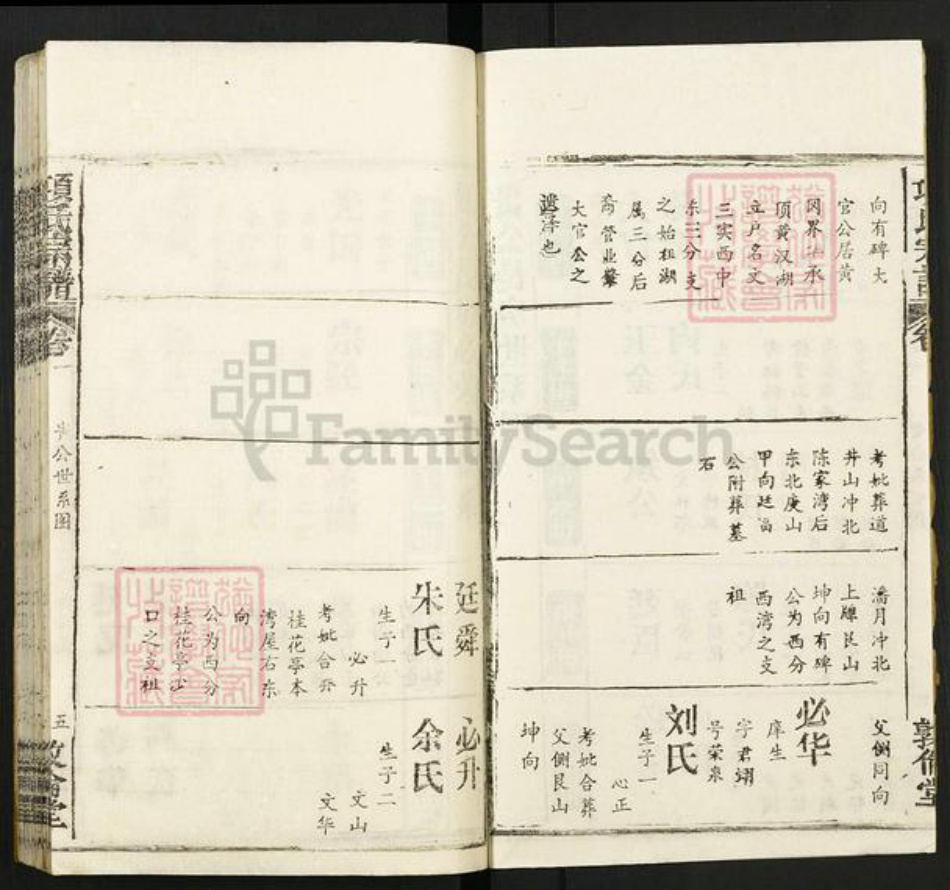 向有碑大
官公居黄
冈界子承
顶黄汉湖
立户名文
三实西中
东三分支
之始祖湖
属三分后
裔管业
大官公之
遗泽也
考妣葬道
井山冲北
陈家湾后
东北庚山
甲向廷
公附葬墓
石
潘月冲北
上牌艮山
坤向有碑
公为西分
西湾之支
祖
父侧同向
必华
庠生
字君翊
号荣泉
刘氏
生子一
心正
考妣合葬
父侧艮山
坤向
敦伦堂
项氏宗谱
卷一
公世系图
五
敦伦堂
廷舜
朱氏
生子一
必升
考妣合葬
桂花亭本
湾屋右东
向
公为西分
桂花亭
口之支祖
必升
余氏
生子二
文山
文华
FamilySearch